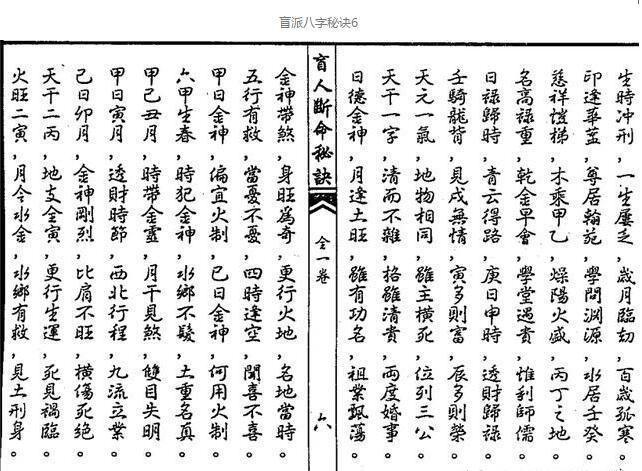 盲派八字秘诀6
生時冲刑,一生屢乏,歲月臨刼,百歲孤寒。
印逢華蓋,尊居翰苑,學問淵源,水居壬癸。
慈祥愷悌,木乘甲乙,燥陽火盛,丙丁之地。
名高祿重,乾金早會,學堂遇貴,惟利師儒。
日祿歸時,青云得路,庚日申時,透財歸祿。
壬騎龍背,見戌無情,寅多則富,辰多則榮。
天元一氣,地物相同,雖主橫死,位列三公。
天干一字,清而不雜,格雖清貴,兩度婚事。
日德金神,月逢土旺,雖有功名,祖業飄蕩。
盲人斷命秘訣
全一卷
六
金神帶煞,身旺爲奇,更行火地,名地當時。
五行有救,當憂不憂,四時逢空,聞喜不喜。
甲日金神,偏宜火制,己日金神,何用火制。
六甲生春,時犯金神,水鄉不髮,土重名真。
甲己丑月,時帶金靈,月干見煞,雙目失明。
甲日寅月,透財時節,西北行程,九流立業。
己日卯月,金神剛烈,比肩不旺,橫傷死絕。
天干二丙,地支全寅,更行生運,死見禍臨。
火旺二寅,月令水金,水鄉有救,見土刑身。